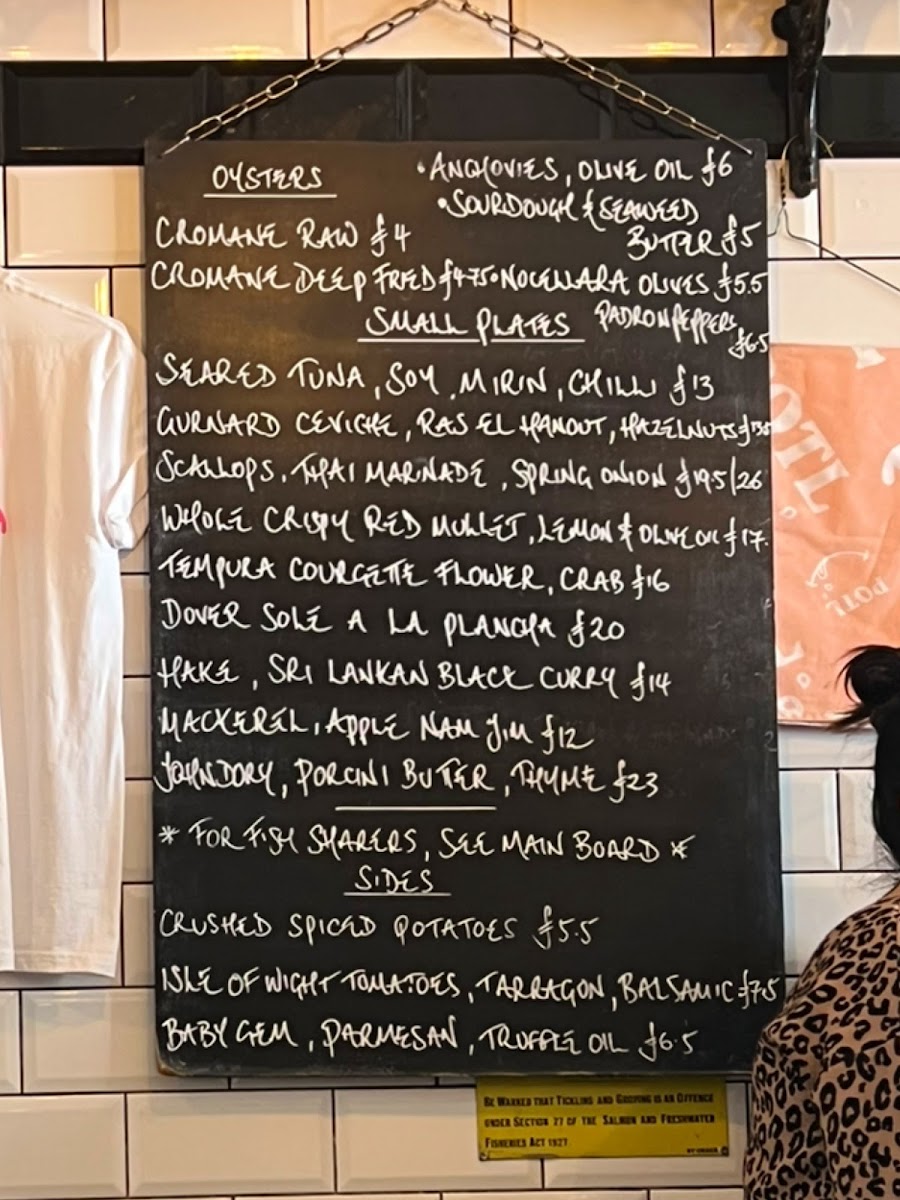 OYSTERS
•ANCHOVIES, OLIVE OIL £6
•SOURDOUGH & SEAWEED
BUTTER £5
CROMANE RAW £4
CROMANE DEEP FRIED £4.75
•NOCELLARA OLIVES £5.5
PADRON PEPPERS
£6.5
SMALL PLATES
SEARED TUNA, SOY, MIRIN, CHILLI £13
GURNARD CEVICHE, RAS EL HANOUT, HAZELNUTS £13.5
SCALLOPS, THAI MARINADE, SPRING ONION £19.5/26
WHOLE CRISPY RED MULLET, LEMON & OLIVE OIL £17.
TEMPURA COURGETTE FLOWER, CRAB £16
DOVER SOLE A LA PLANCHA £20
HAKE, SRI LANKAN BLACK CURRY £14
MACKEREL, APPLE NAM JIM £12
JOHN DORY, PORCINI BUTTER, THYME £23
* FOR FISH SHARERS, SEE MAIN BOARD *
SIDES
CRUSHED SPICED POTATOES £5.5
ISLE OF WIGHT TOMATOES, TARRAGON, BALSAMIC £7.5
BABY GEM, PARMESAN, TRUFFLE OIL £6.5
BE WARNED THAT TICKLING AND GROPING IS AN OFFENCE
UNDER SECTION 27 OF THE SALMON AND FRESHWATER
FISHERIES ACT 1927.
BY ORDER
POTL